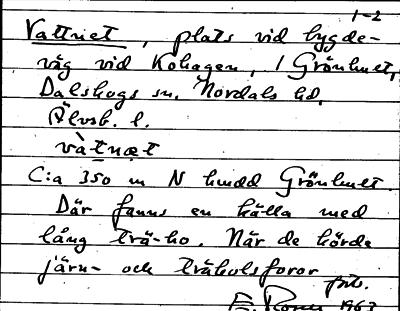 1-2
Vattnet, plats vid bygde-
väg vid Kohagen, i Grönhult,
Dalskogs sn. Nordals hd.
Älvsb. l.
vàtnæt
C:a 350 m N hudd Grönhult.
Där fanns en källa med
lång trä-ho. När de körde
järn- och träkolsforor
forts.
1963